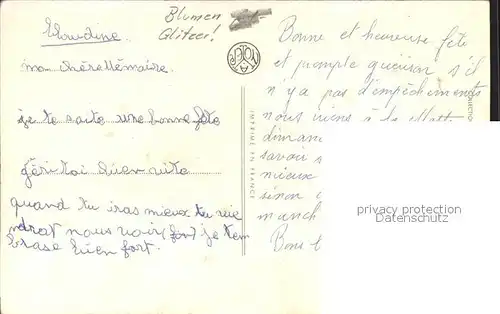 Blumen
Glitzer!
Claudine
ma chère Mémaire.
je te soite une bonne fête
géri toi bien vite
quand tu iras mieux tu vie
ndrat nous voir (fon) je tem
brase bien fort.
Bonne et heureuse fête
et prompte guérison s'il
n'y a pas d'empêchements
nous irons à la
diman
savoir
mieux
sinon
manch
Bons b
IMPRIMÉ EN FRANCE
privacy protection
Datenschutz